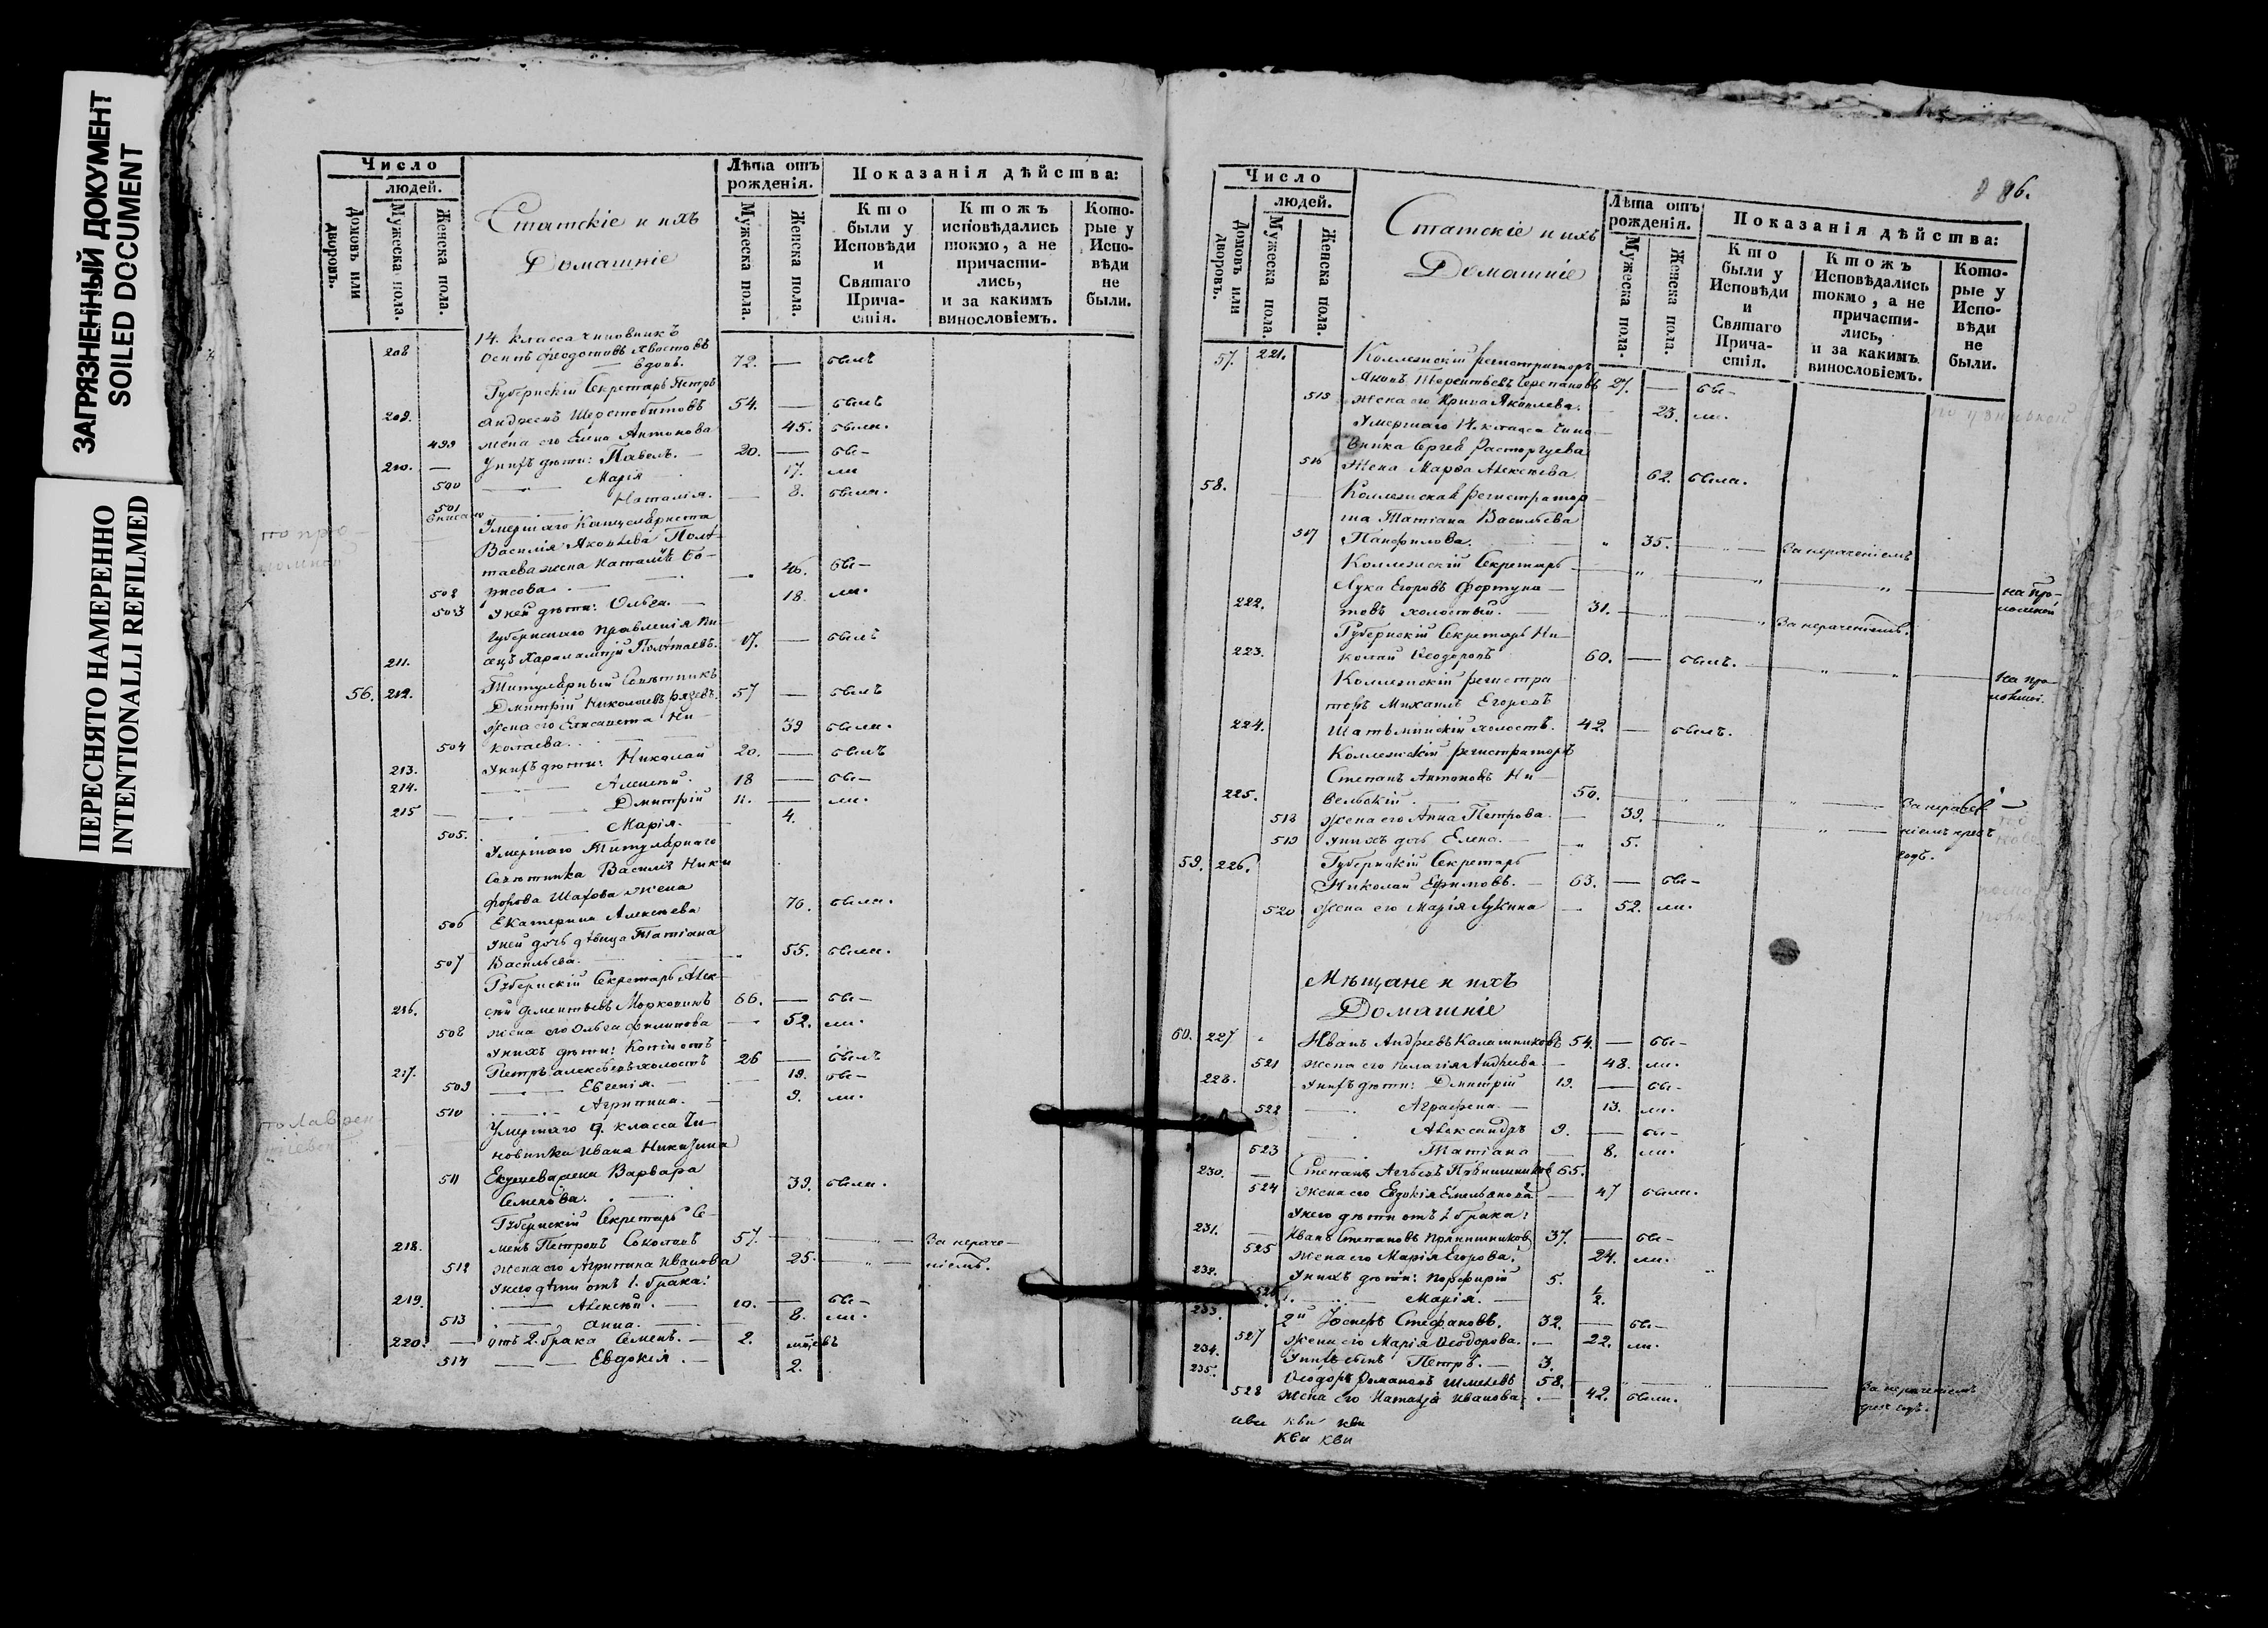 ЗАГРЯЗНЕННЫЙ ДОКУМЕНТ
SOILED DOCUMENT
ПЕРЕСНЯТО НАМЕРЕННО
INTENTIONALLI REFILMED
Число
людей.
Домовъ или дворовъ.
Мужеска пола.
Женска пола.
Статскіе и ихъ
Домашніе
Лѣта отъ рожденія.
Мужеска пола.
Женска пола.
Показанія дѣйства:
Кто были у Исповѣди и Святаго Прича-стія.
Ктожъ исповѣдались токмо, а не причасти-лись, и за какимъ винословіемъ.
Кото-рые у Испо-вѣди не были.
14. класса чиновникъ
208 Осипъ Ѳедотовъ Хвостовъ
вдовъ. 72. — былъ
Губернскій Секретарь Петръ
209. Андреевъ Шерстобитовъ 54. — былъ
499 жена его Елена Антонова 45. были.
210. — У нихъ дѣти: Павелъ. — 20. — бы—
500 Марія 17. ли
501 Наталія. — 8. были.
Умершаго Канцеляриста
Василія Яковлева Полѣ-
таева жена Наталія Бо-
502 рисова. 40. бы—
503 У ней дѣти: Ольга. — 18. ли.
Губернскаго правленія Пи-
211. сецъ Харалампій Полѣтаевъ. 17. — былъ
Титулярный Совѣтникъ
56. 212. Дмитрій Николаевъ 57 — былъ
жена его Елисавета Ни-
504 колаева. 39 были.
213. У нихъ дѣти: Николай 20. — былъ
214. Алексѣй. 18 — бы—
215 Дмитрій 11. — ли.
505. Марія. 4.
Умершаго Титулярнаго
Совѣтника Василія Ники
форова Шахова жена
506 Екатерина Алексѣева 70. были.
У ней дочь дѣвица Татіана
507 Васильева. 55. были.
Губернскій Секретарь Алек-
216. сѣй Дементьевъ Морковинъ 66. — бы—
508 жена его Ольга Филипова 52. ли.
У нихъ дѣти: Копіистъ
217. Петръ Алексѣевъ холостъ 26 — былъ
509 Евгенія. — 19. бы—
510 Агрипина. — 9. ли.
Умершаго 9. класса Чи-
новника Ивана
511 Варвара
Семенова. 39. были.
Губернскій Секретарь Се-
218. менъ Петровъ Соколовъ 57. За нераче-
512 жена его Агрипина Иванова 25. ніемъ.
У него дѣти отъ 1. брака:
219. Алексѣй. — 10. — бы—
513 Анна. — 8. ли.
220. — отъ 2. брака Семенъ. — 2.
514 Евдокія. — 2.
86.
Число
людей.
Домовъ или дворовъ.
Мужеска пола.
Женска пола.
Статскіе и ихъ
Домашніе
Лѣта отъ рожденія.
Мужеска пола.
Женска пола.
Показанія дѣйства:
Кто были у Исповѣди и Святаго Прича-стія.
Ктожъ Исповѣдались токмо, а не причасти-лись, и за какимъ винословіемъ.
Кото-рые у Испо-вѣди не были.
57. 221. Коллежскій регистраторъ
Яковъ Терентьевъ Черепановъ 27. — бы—
515 жена его Ирина Яковлева. 23. ли.
Умершаго 14. класса Чино—
вника Сергея Расторгуева
516 жена Марѳа Алексѣева 62. была.
58. Коллежская регистратор
ша Татіана Васильева
517 Панфилова. 35. За нераченіемъ
Коллежскій Секретарь
Лука Егоровъ Фортуна—
222. товъ холостый. — 31. За нераченіемъ.
Губернскій Секретарь Ни—
223. колай Ѳеодоровъ 60. — былъ.
Коллежскій регистра
торъ Михаилъ Егоровъ
224. холостъ. 42. — былъ.
Коллежскій регистраторъ
Степанъ Антоновъ Ни—
225. вельскій. 50. За нераче—
518 жена его Анна Петрова. — 39. ніемъ
519 У нихъ дочь Елена. — 5. годъ.
59. 226. Губернскій Секретарь
Николай Ефимовъ. — 63. — бы—
520 жена его Марія Лукина 52. ли.
Мѣщане и ихъ
Домашніе
60. 227 Иванъ Андреевъ Калашниковъ 54. — бы—
521 жена его Пелагія Андреева. 48. ли.
228. У нихъ дѣти: Дмитрій 19. — бы—
522 Аграфена. — 13. ли.
Александръ 9. — бы—
523 Татіана 8. ли.
230. Степанъ Пряничниковъ 65.
524 жена его Евдокія Емельянова — 47 были.
У него дѣти отъ 1 брака:
231. Иванъ Степановъ Пряничниковъ 37. — бы—
525 жена его Марія Егорова. 24. ли.
232. У нихъ дѣти: Порфирій 5.
Марія. — ½.
233 2й Іосифъ Стефановъ. 32. — бы—
527 жена его Марія Ѳеодорова. 22. ли.
234. У нихъ сынъ Петръ. — 3.
235. Ѳеодоръ Романовъ Шмелевъ 58.
528 жена его Наталья Иванова. 42. были.
За нераченіемъ
годъ.